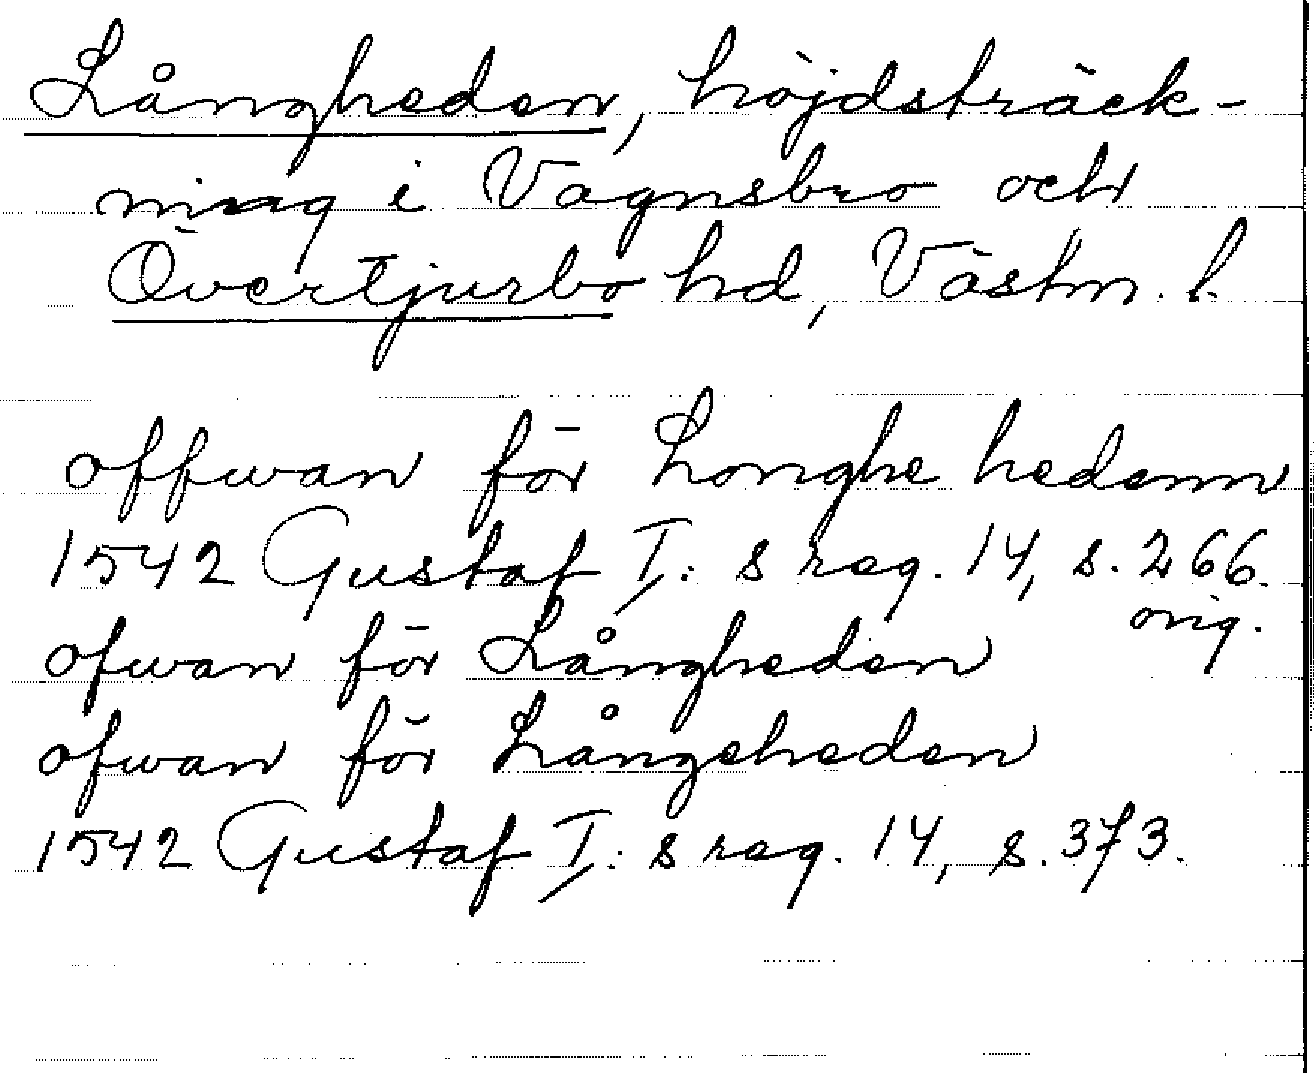 Långheden, höjdsträck-
ning i Vagnsbro och
Övertjurbo hd, Västm. l.
offwan för Longhe hedenn
1542 Gustaf I: s reg. 14, s. 266.
orig.
ofwan för Långheden
ofwan för Långeheden
1542 Gustaf I: s reg. 14, s. 373.